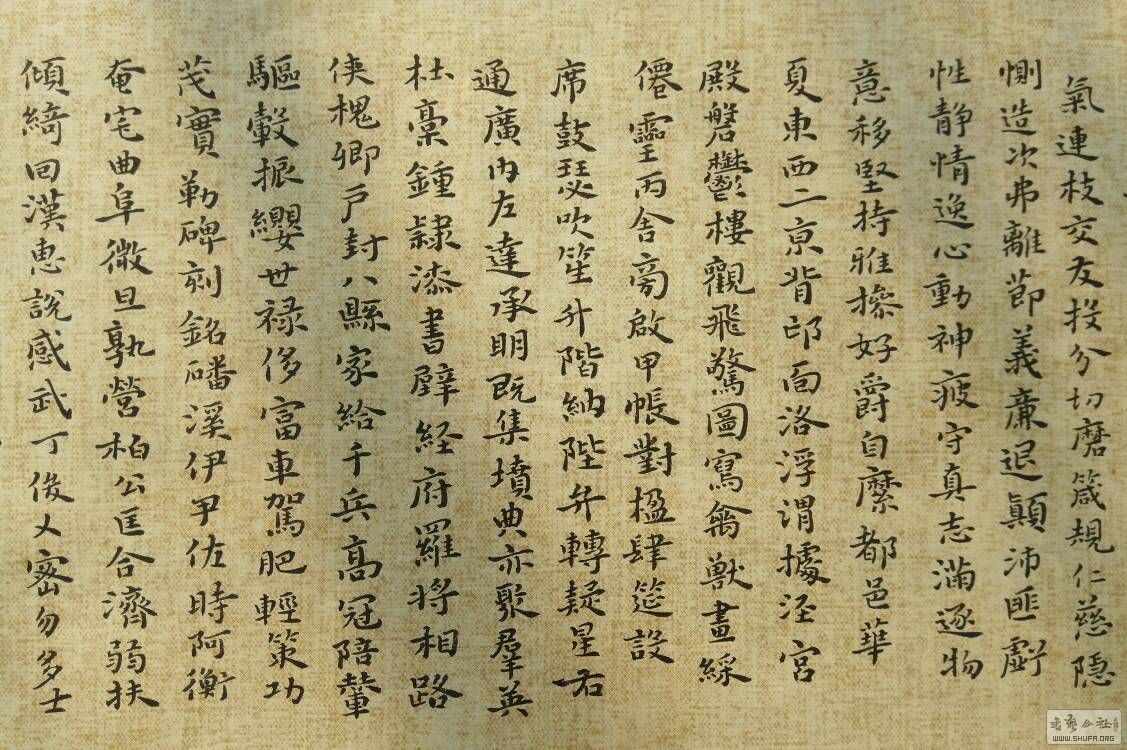 氣連枝交友投分切磨箴規仁慈隱
惻造次弗離節義廉退顛沛匪虧
性靜情逸心動神疲守真志滿逐物
意移堅持雅操好爵自縻都邑華
夏東西二京背邙面洛浮渭據涇宮
殿磐鬱樓觀飛驚圖寫禽獸畫綵
僊靈丙舍旁啟甲帳對楹肆筵設
席鼓瑟吹笙升階納陛弁轉疑星右
通廣內左達承明既集墳典亦聚羣英
杜稾鍾隸漆書壁経府羅將相路
俠槐卿戶封八縣家給千兵高冠陪輦
驅轂振纓世祿侈富車駕肥輕策功
茂實勒碑刻銘磻溪伊尹佐時阿衡
奄宅曲阜微旦孰營桓公匡合濟弱扶
傾綺回漢惠說感武丁俊乂密勿多士
書藝公社
WWW.SHUFA.ORG